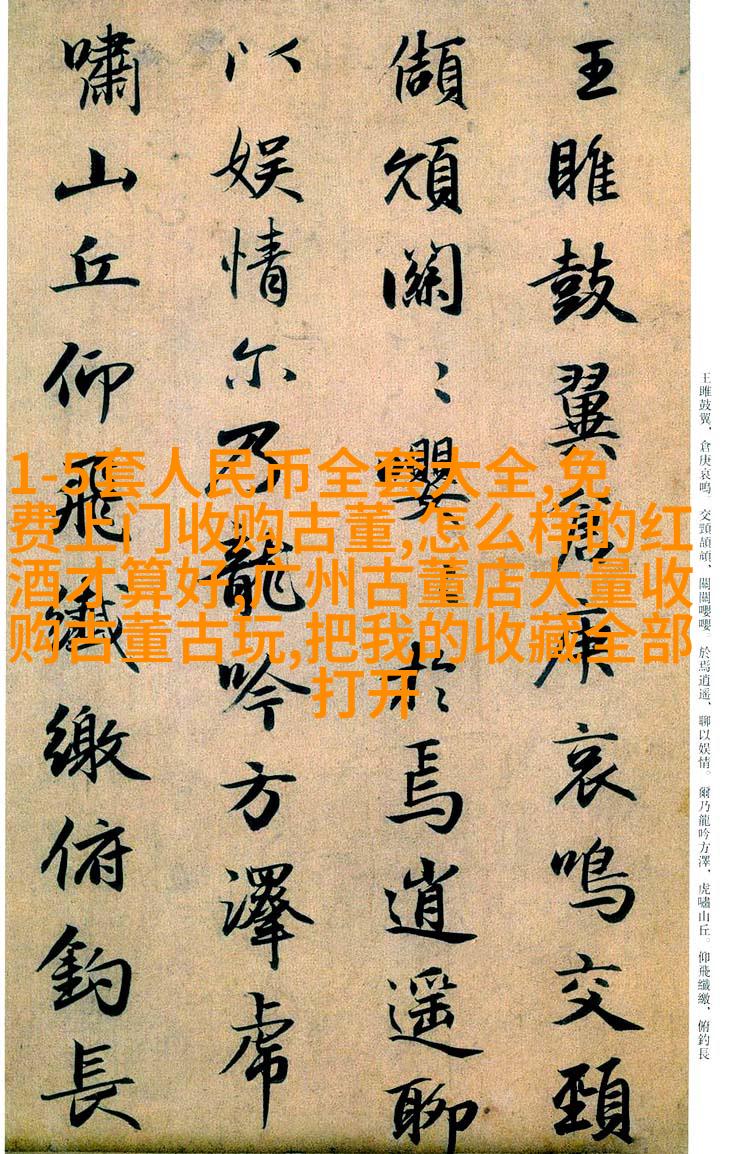 王雎鼓翼倉庚哀鳴交頸
頡頏關〻嚶〻於焉逍遥聊
以娱情尔乃龍吟方澤虎
嘯山丘仰飛纖繳俯釣長
王雎鼓翼，倉庚哀鳴。交頸頡頏，關關嚶嚶。於焉逍遥，聊以娱情。爾乃龍吟方澤，虎嘯山丘。仰飛纖繳，俯釣長
1-5套人民币全套大全,免
费上门收购古董,怎么样的红
酒才算好,广州古董店大量收
购古董古玩,把我的收藏全部
打开